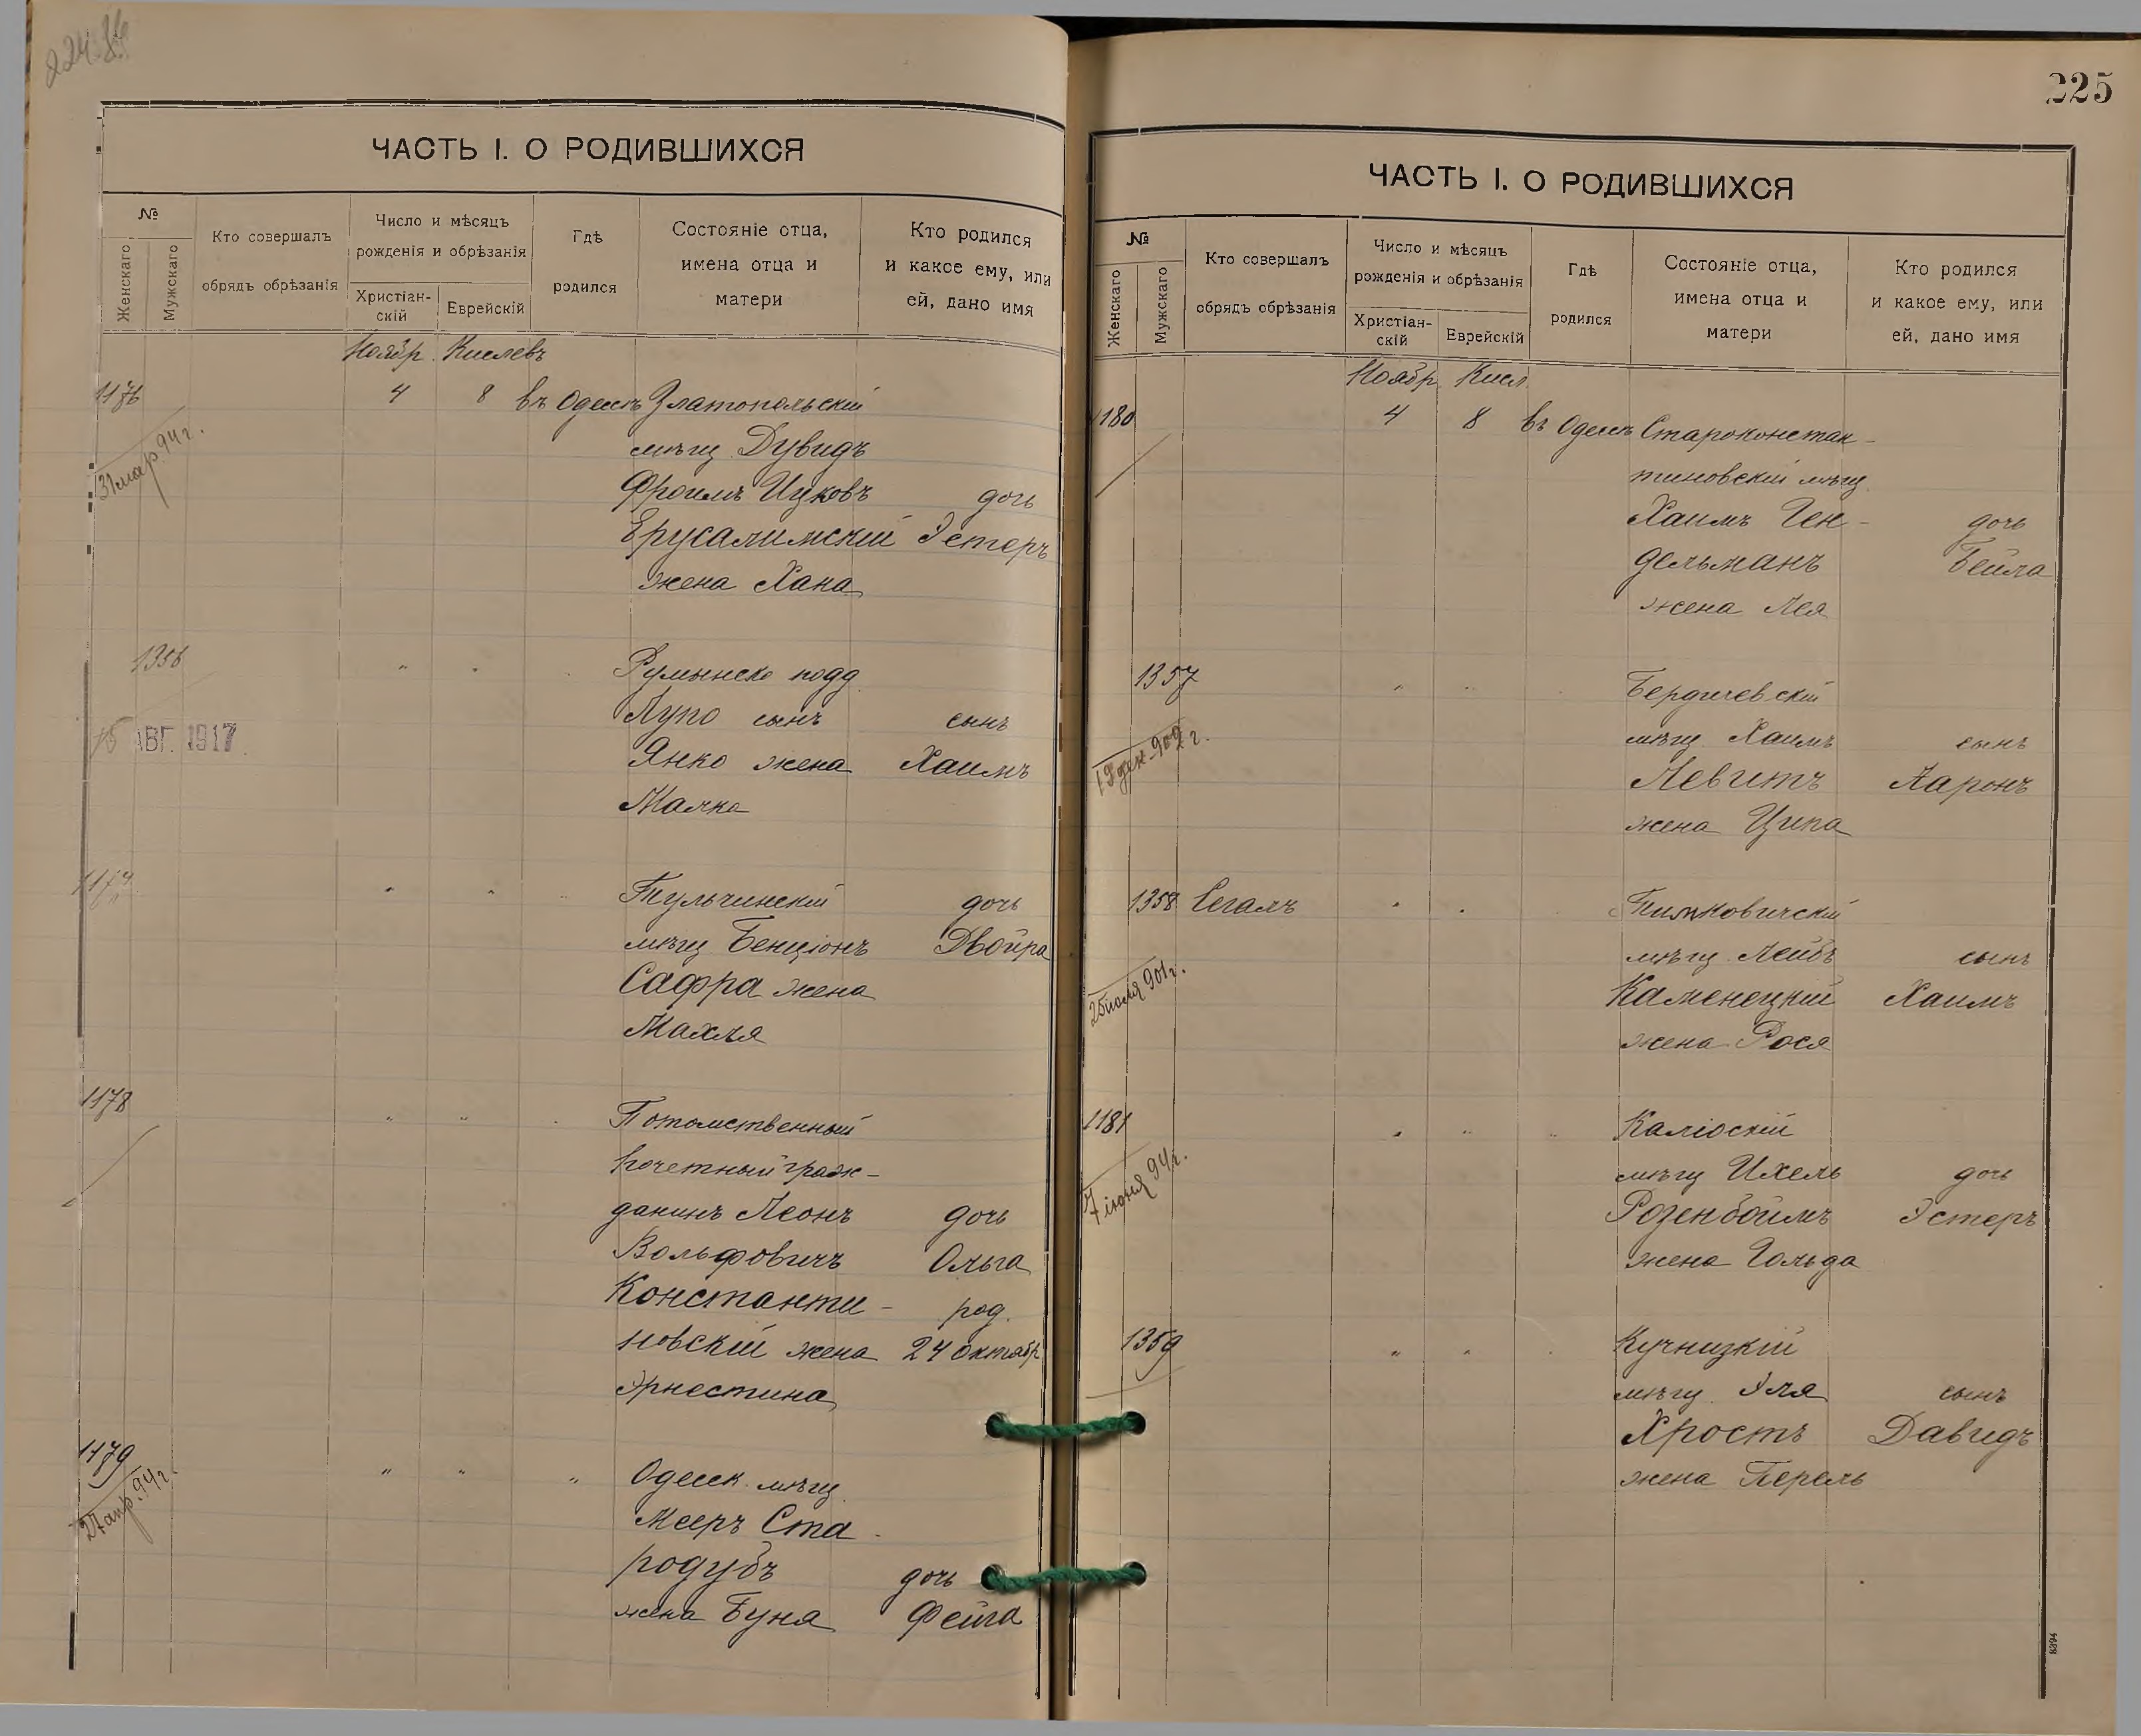 ЧАСТЬ I. О РОДИВШИХСЯ
№
Женскаго
Мужскаго
Кто совершалъ
обрядъ обрѣзанія
Число и мѣсяцъ
рожденія и обрѣзанія
Христіан-
скій
Еврейскій
Гдѣ
родился
Состояніе отца,
имена отца и
матери
Кто родился
и какое ему, или
ей, дано имя
Ноябр. Кислевъ
1176 4 8 въ Одессѣ Златопольскій
31 мар. 94 г.
мѣщ. Дувидъ
Фроимъ Ицковъ дочь
Ерусалимскій Эстеръ
жена Хана
1356 " " Румынско подд.
Лупо сынъ сынъ
15 АВГ. 1917
Янко жена Хаимъ
Малка
1177 " " Тульчинскій дочь
мѣщ Бенціонъ Двойра
Сафра жена
Махля
1178 " " Потомственный
почетный граж-
данинъ Леонъ дочь
Вольфовичъ Ольга
Константи- род.
новскій жена 24 октябр
Эрнестина
1179 " " " Одесск. мѣщ.
24 апр. 94 г.
Мееръ Ста-
родубъ дочь
жена Буня Фейга
225
ЧАСТЬ I. О РОДИВШИХСЯ
№
Женскаго
Мужскаго
Кто совершалъ
обрядъ обрѣзанія
Число и мѣсяцъ
рожденія и обрѣзанія
Христіан-
скій
Еврейскій
Гдѣ
родился
Состояніе отца,
имена отца и
матери
Кто родился
и какое ему, или
ей, дано имя
Ноябр. Кисл.
1180 4 8 въ Одессѣ Староконстан-
тиновскій мѣщ.
Хаимъ Ген- дочь
дельманъ Бейла
жена Лея
1357 " " Бердичевскій
19 дек. 909 г.
мѣщ. Хаимъ сынъ
Левитъ Ааронъ
жена Ципа
1358 Сегалъ " "
мѣщ. Лейбъ сынъ
25 іюля 901 г.
Каменецкій Хаимъ
жена Рося
1181 " " " Каліоскій
7 іюня 94 г.
мѣщ Ихель дочь
Розенбоймъ Эстеръ
жена Гольда
1359 " " Кучницкій
мѣщ. Эля сынъ
Хростъ Давидъ
жена Перель
8394